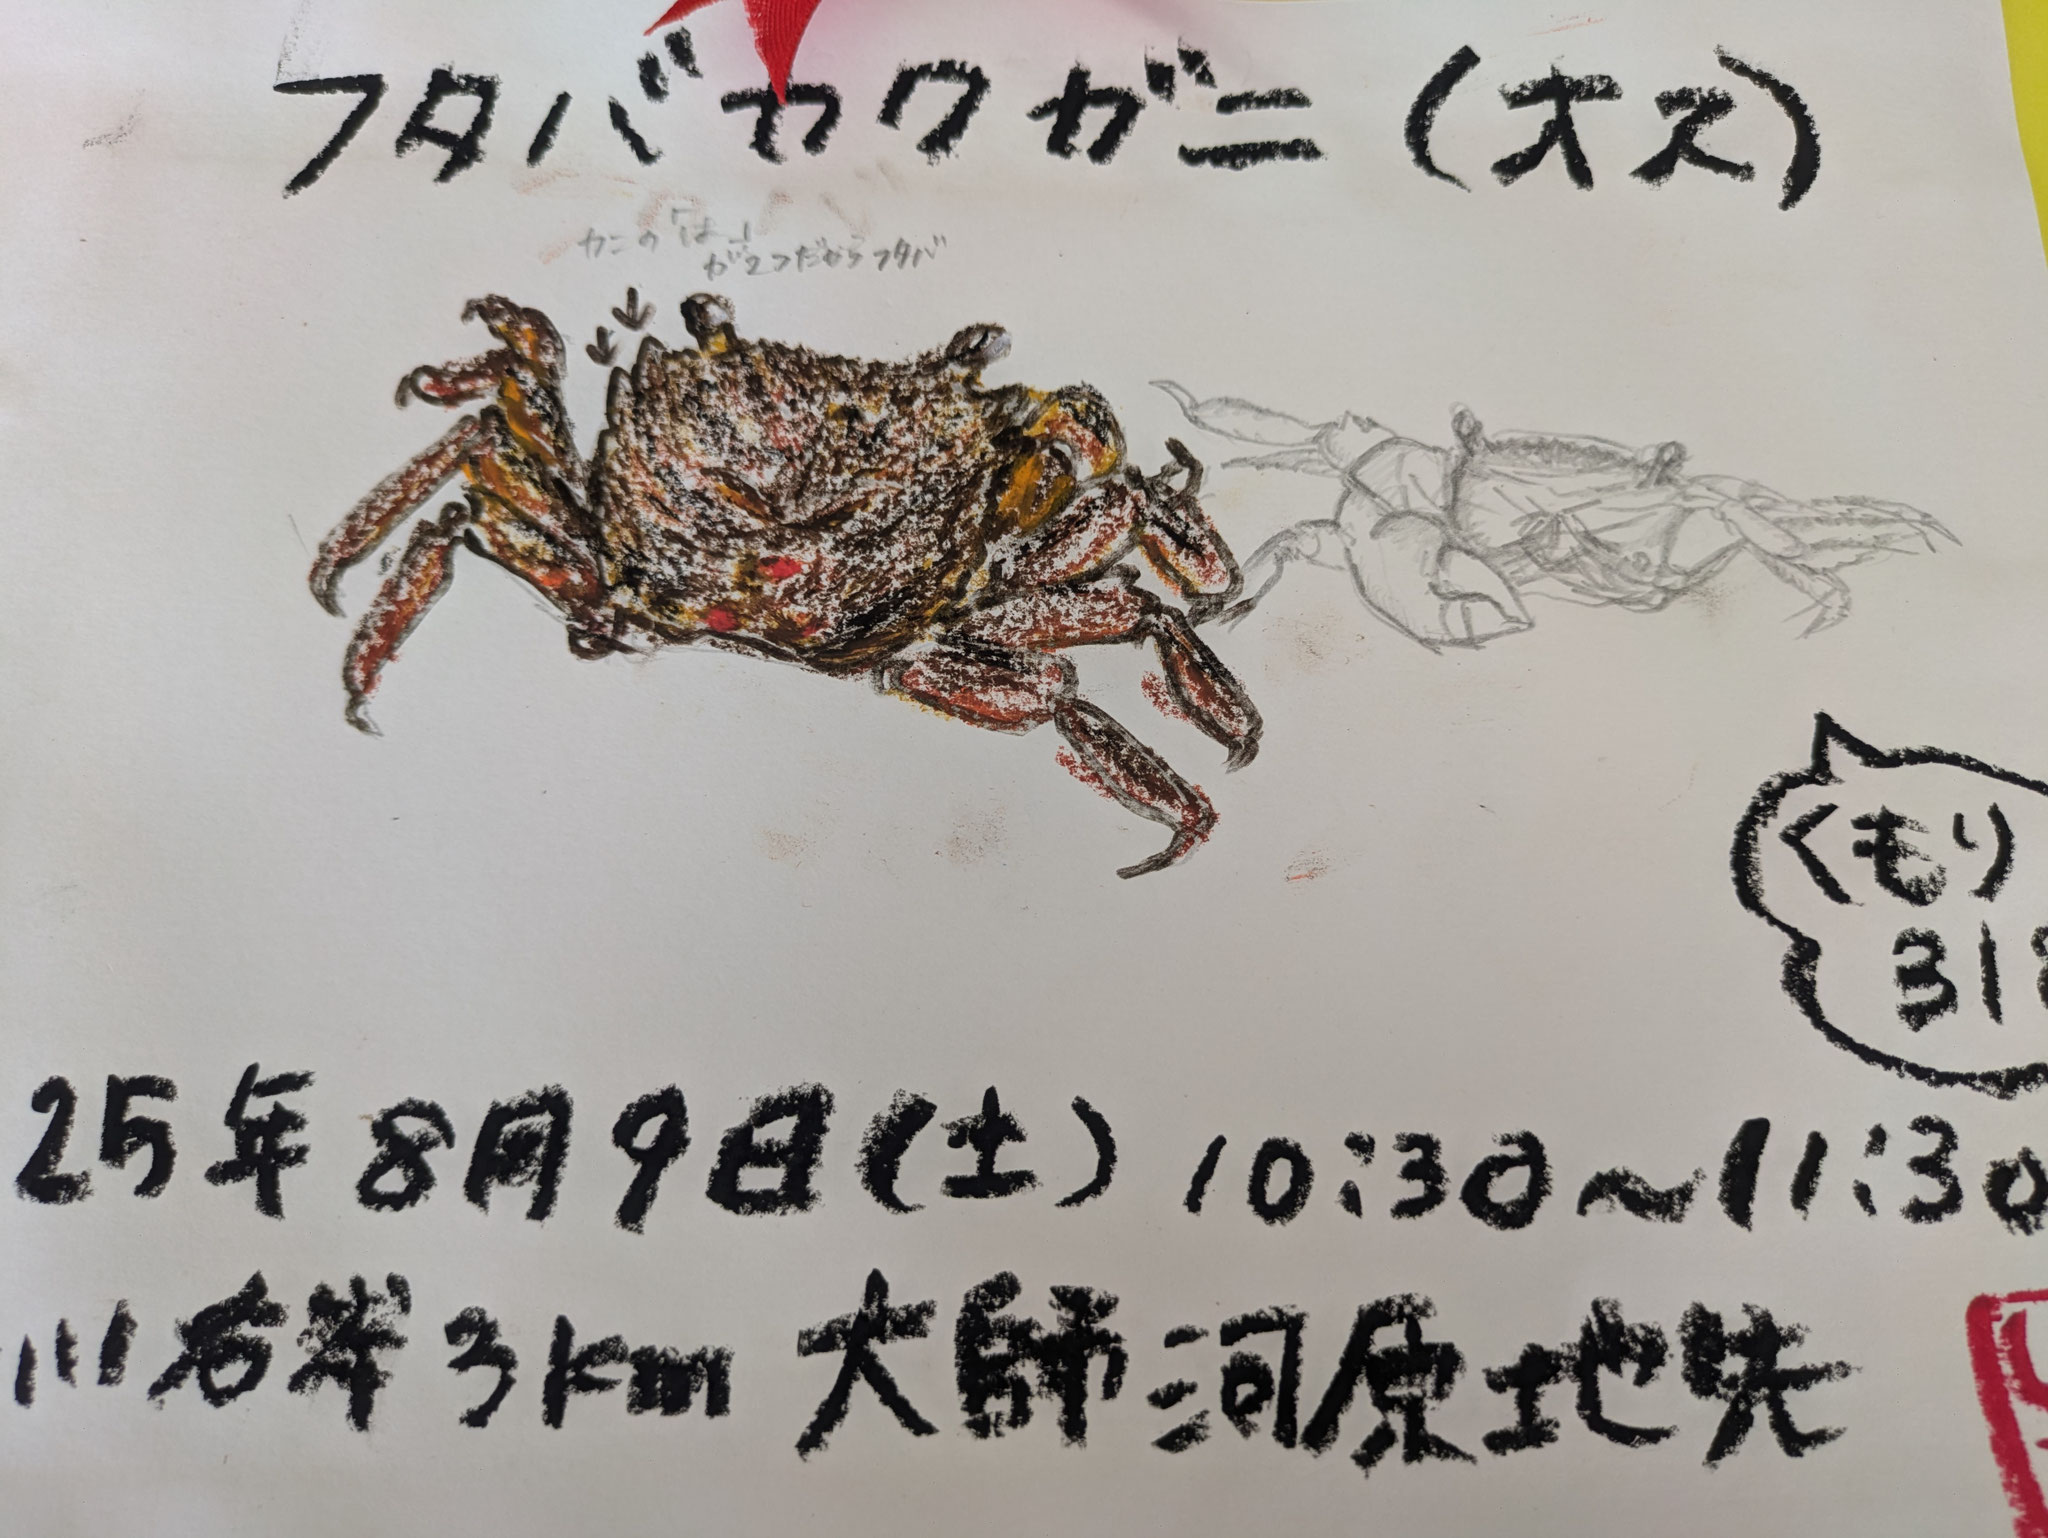 フタバカクガニ(オス)
カニの「は」
が2つだからフタバ
くもり
318
25年8月9日(土) 10:30~11:30
川右岸3km 大師河原地先